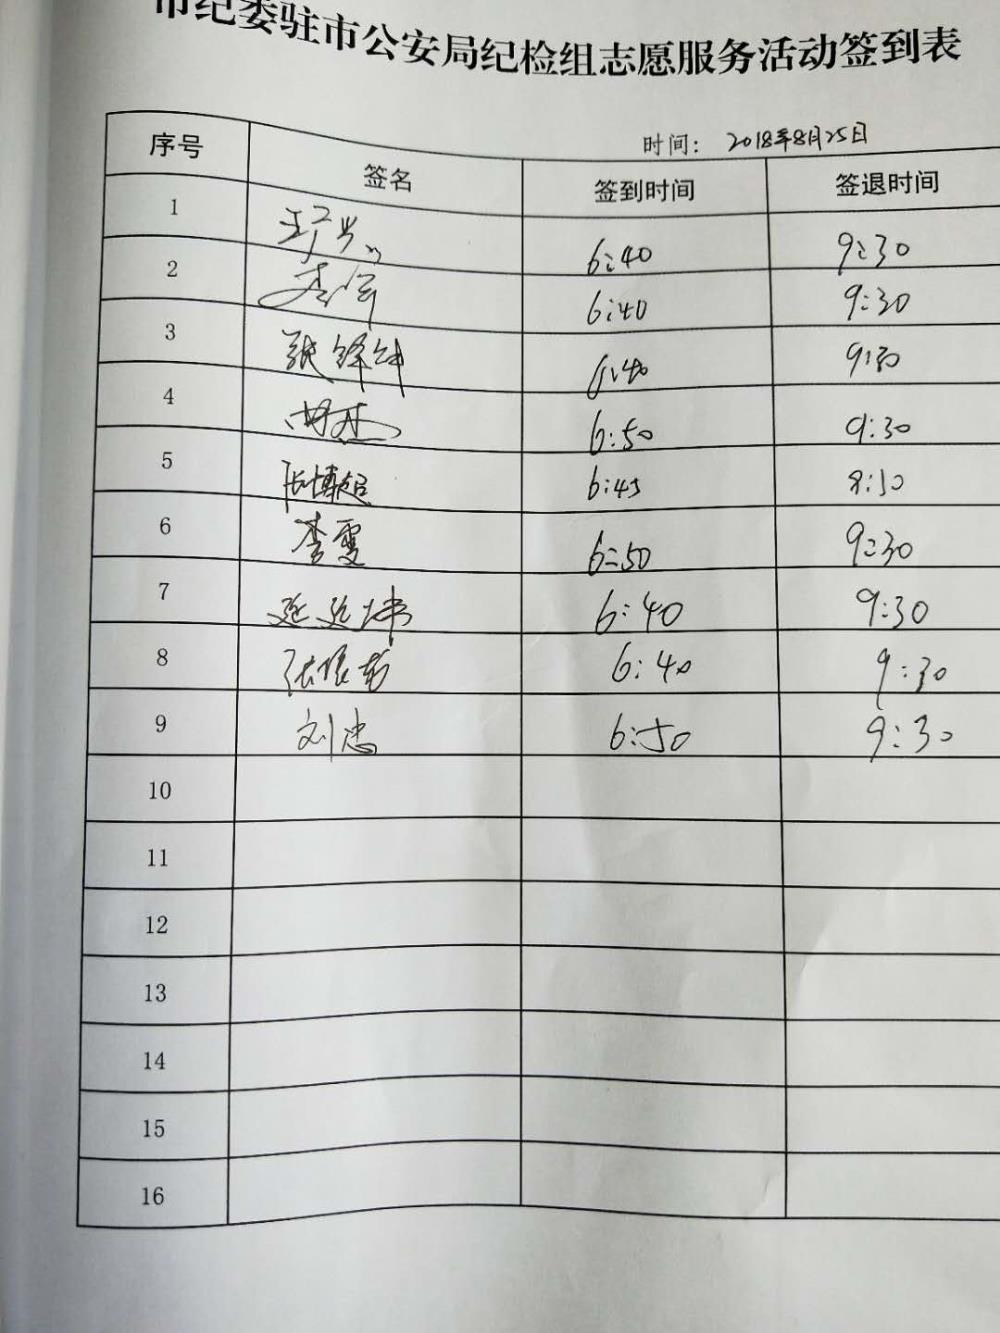 市纪委驻市公安局纪检组志愿服务活动签到表
时间： 2018年8月25日
序号 签名 签到时间 签退时间
1 6:40 9:30
2 6:40 9:30
3 6:40 9:30
4 6:50 9:30
5 张博超 6:45 8:30
6 李雯 6:50 9:30
7 6:40 9:30
8 张振芳 6:40 9:30
9 刘忠 6:50 9:30
10
11
12
13
14
15
16